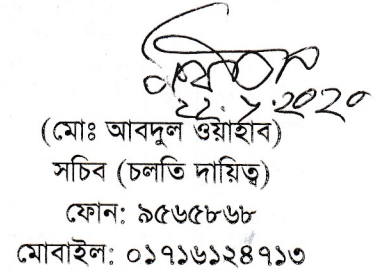 (মোঃ আবদুল ওয়াহাব)
সচিব (চলতি দায়িত্ব)
ফোন: ৯৫৬৫৮৬৮
মোবাইল: ০১৭১৬১২৪৭১৩